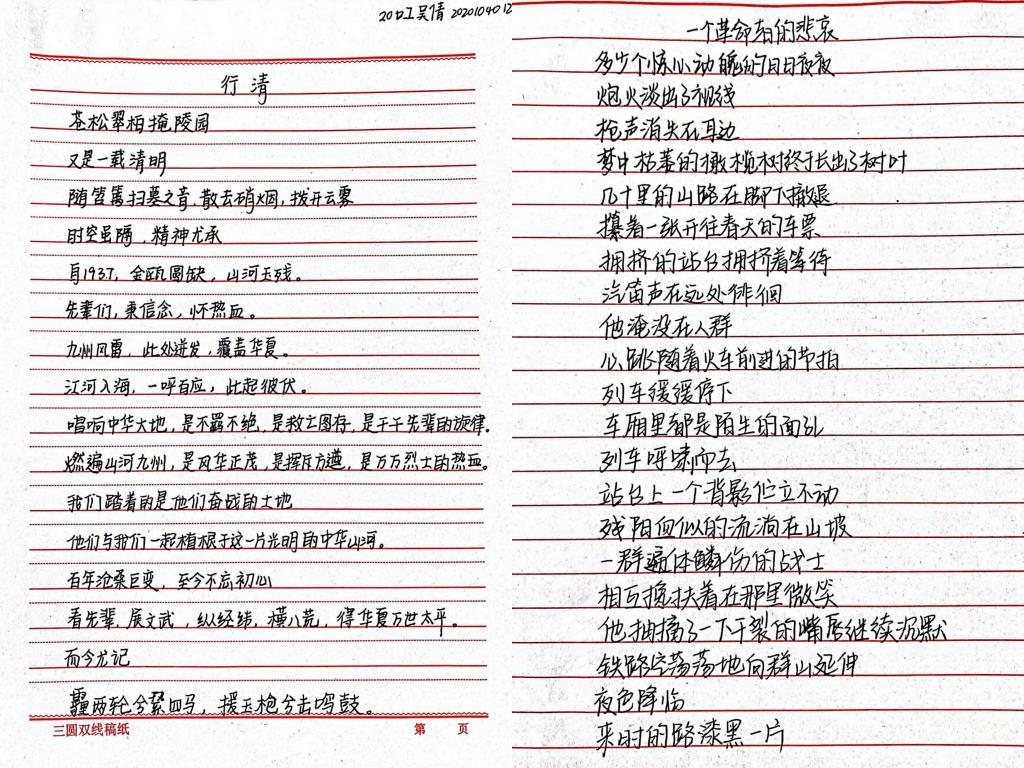 20口工吴倩 2020104012
行清
苍松翠柏掩陵园
又是一载清明
随笤篱扫墓之音,散去硝烟,拨开云雾
时空虽隔,精神尤承
自1937,金瓯圆缺,山河玉残。
先辈们,秉信念,怀热血。
九州风雷,此处迸发,覆盖华夏。
江河入海,一呼百应,此起彼伏。
唱响中华大地,是不羁不绝,是救亡图存,是千千先辈的旋律。
燃遍山河九州,是风华正茂,是挥斥方遒,是万万烈士的热血。
我们踏着的是他们奋战的土地
他们与我们一起植根于这一片光明的中华山河。
百年沧桑巨变,至今不忘初心
看先辈,展文武,纵经纬,横八荒,得华夏万世太平。
而今尤记
霾两轮兮絷四马,援玉枹兮击鸣鼓。
三圆双线稿纸
第 页
一个革命者的悲哀
多少个惊心动魄的日日夜夜
炮火淡出了视线
枪声消失在耳边
梦中枯萎的橄榄树终于长出了树叶
几十里的山路在脚下撤退
攥着一张开往春天的车票
拥挤的站台拥挤着等待
汽笛声在远处徘徊
他淹没在人群
心跳随着火车前进的节拍
列车缓缓停下
车厢里都是陌生的面孔
列车呼啸而去
站台上一个背影伫立不动
残阳血似的流淌在山坡
一群遍体鳞伤的战士
相互搀扶着在那里微笑
他抽搐了一下干裂的嘴唇继续沉默
铁路空荡荡地向群山延伸
夜色降临
来时的路漆黑一片